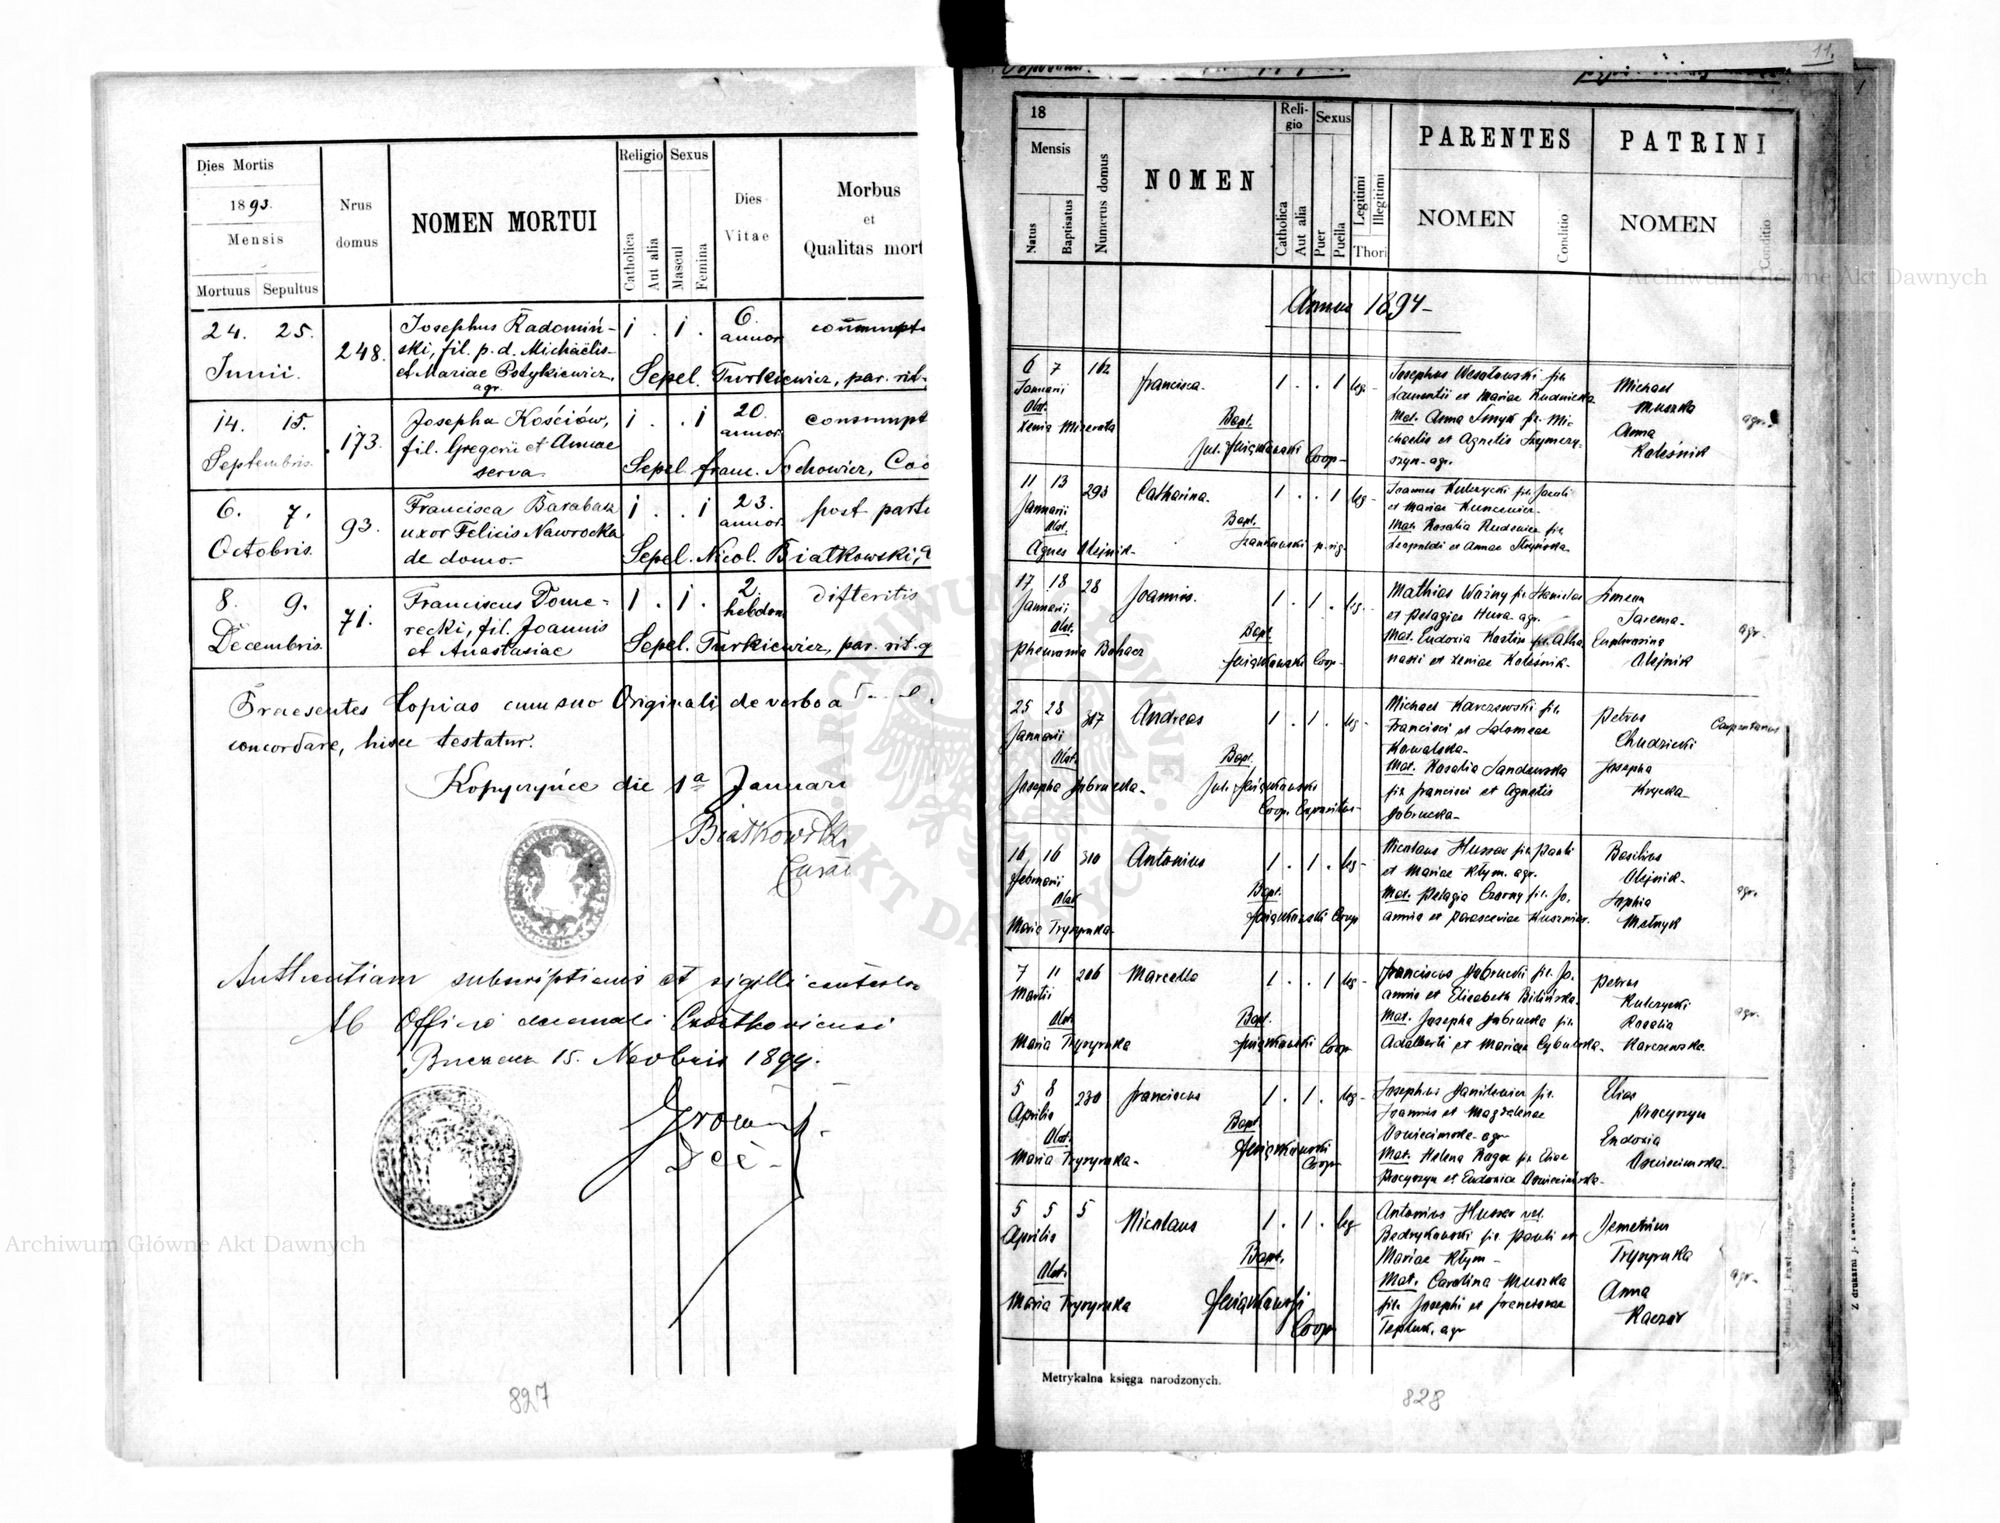 Dies Mortis
1893.
Mensis
Mortuus Sepultus
Nrus
domus
NOMEN MORTUI
Religio Sexus
Catholica
Aut alia
Mascul
Femina
Dies
Vitae
Morbus
et
Qualitas mort
24. 25.
Junii.
248.
Josephus Radomiń-
ski, fil. p. d. Michaëlis
et Mariae Potykiewicz,
agr.
1 . 1 .
6.
annor
consumpt
Sepel. Turkiewicz, par. rit.
14. 15.
Septembris.
173.
Josepha Kościów,
fil. Gregorii et Annae
serva
1 . . 1
20.
annor.
consumpt
Sepel. franc. Nochowicz, Coo
6. 7.
Octobris.
93.
Francisca Barabasz
uxor Felicis Nawrocka
de domo.
1 . . 1
23.
annor.
post part
Sepel. Nicol. Białkowski,
8. 9.
Decembris.
71.
Franciscus Dome-
recki, fil. Joannis
et Anastasiae
1 . 1 .
2.
hebdom
difteritis
Sepel. Turkiewicz, par. rit. g
Praesentes Copias cum suo Originali de verbo a
concordare, hisce testatur.
Kopyczyńce die 1ª Januari
Białkowski
Authentiam subscriptionis et sigilli contesta
Ab Officio decanali Czortkoviensi
15. Novbris 1894.
827
11.
18
Mensis
Natus
Baptisatus
Numerus domus
NOMEN
Reli-
gio
Sexus
Catholica
Aut alia
Puer
Puella
Legitimi
Illegitimi
Thori
PARENTES
NOMEN
Conditio
PATRINI
NOMEN
Conditio
Annus 1894-
6 7
Januarii
Obst.
Xenia Mizerota
162
Francisca.
1 . . 1 leg-
Bapt.
Coop-
Josephus Wesołowski fil.
Laurentii et Mariae Rudnicka
Mat. Anna Smyk fil. Mi-
chaelis et Agnetis Szymczy-
szyn-agr.
Michael
Muszka
Anna
Koleśnik
agr.
11 13
Januarii
Obst.
Agnes Olejnik-
293
Catharina.
1 . . 1 leg-
Bapt.
Joannes Kulczycki fil. Pauli
et Mariae Kuncewicz-
Mat. Rosalia Rudewicz fil.
Leopoldi et Annae
17 18
Januarii
Obst.
28
Joannes.
1 . 1 . leg.
Bapt.
Coop-
Mathias Ważny fil. Stanislai
et Pelagiae Hura agr.
Mat. Eudoxia Kostin fil. Atha
nasii et Xeniae Koleśnik-
Simeon
Jarema-
Euphrosina
Olejnik
agr.
25 28
Januarii
Obst.
Josepha
317
Andreas
1 . 1 . leg-
Bapt.
Coop. Expositus-
Michael Karczewski fil.
Francisci et Salomeae
Kowalska-
Mat. Rosalia Sandowska
fil. Francisci et Agnetis
Petrus
Chudzicki
Josepha
Krycka-
Carpentarius
16 16
Februarii
Obst.
Maria Tryzynka-
310
Antonius
1 . 1 . leg-
Bapt.
Coop
Nicolaus Hussar fil. Pauli
et Mariae Kłym. agr.
Mat. Pelagia Czorny fil. Jo,
annis et Parasceviae Kusznier.
Basilius
Olejnik-
Sophia
Melnyk
agr.
7 11
Martii
Obst.
Maria Tryzynka
206
Marcella
1 . . 1 leg-
Bapt.
Coop
Franciscus fil. Jo,
annis et Elisabeth Bilińska-
Mat. Josepha fil.
Adalberti et Mariae Cybulska-
Petrus
Kulczycki
Rosalia
Karczewska
agr.
5 8
Aprilis
Obst.
Maria Tryzynka-
230
Franciscus
1 . 1 . leg-
Bapt.
Coop
Josephus Danilewicz fil.
Joannis et Magdalenae
Oswiecimska-agr
Mat. Helena fil. Eliae
Procyszyn et Eudoxiae Oswiecimska-
Elias
Procyszyn
Eudoxia
Oswiecimska-
5 5
Aprilis
Obst.
Maria Tryzynka
5
Nicolaus
1 . 1 . leg
Bapt.
Coop
Antonius Hussar vel.
Bedrykowski fil. Pauli et
Mariae Kłym-
Mat. Carolina Muszka
fil. Josephi et Franciscae
agr
Demetrius
Tryzynka
Anna
Kaczor
agr-
Metrykalna księga narodzonych.
828
Archiwum Główne Akt Dawnych
Archiwum Główne Akt Dawnych
ARCHIWUM GŁÓWNE AKT DAWNYCH